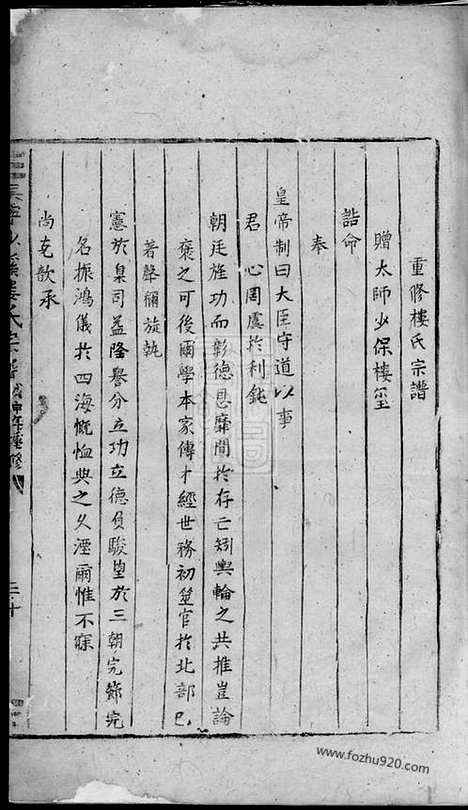 重修樓氏宗譜
贈太師少保樓璽
誥命
奉
皇帝制曰大臣守道以事
君心罔虞於利鈍
朝廷旌功而彰德恩靡間於存亡矧輿輪之共推豈論
褒之可後爾學本家傳才經世務初筮官於北部已
著聲稱旋執
憲於臬司益隆譽分立功立德負駿望於三朝完節完
名振鴻儀於四海慨恤典之久湮爾惟不寐
尚克歆承
氏宗譜
申年重修
二十
www.fozhu920.com